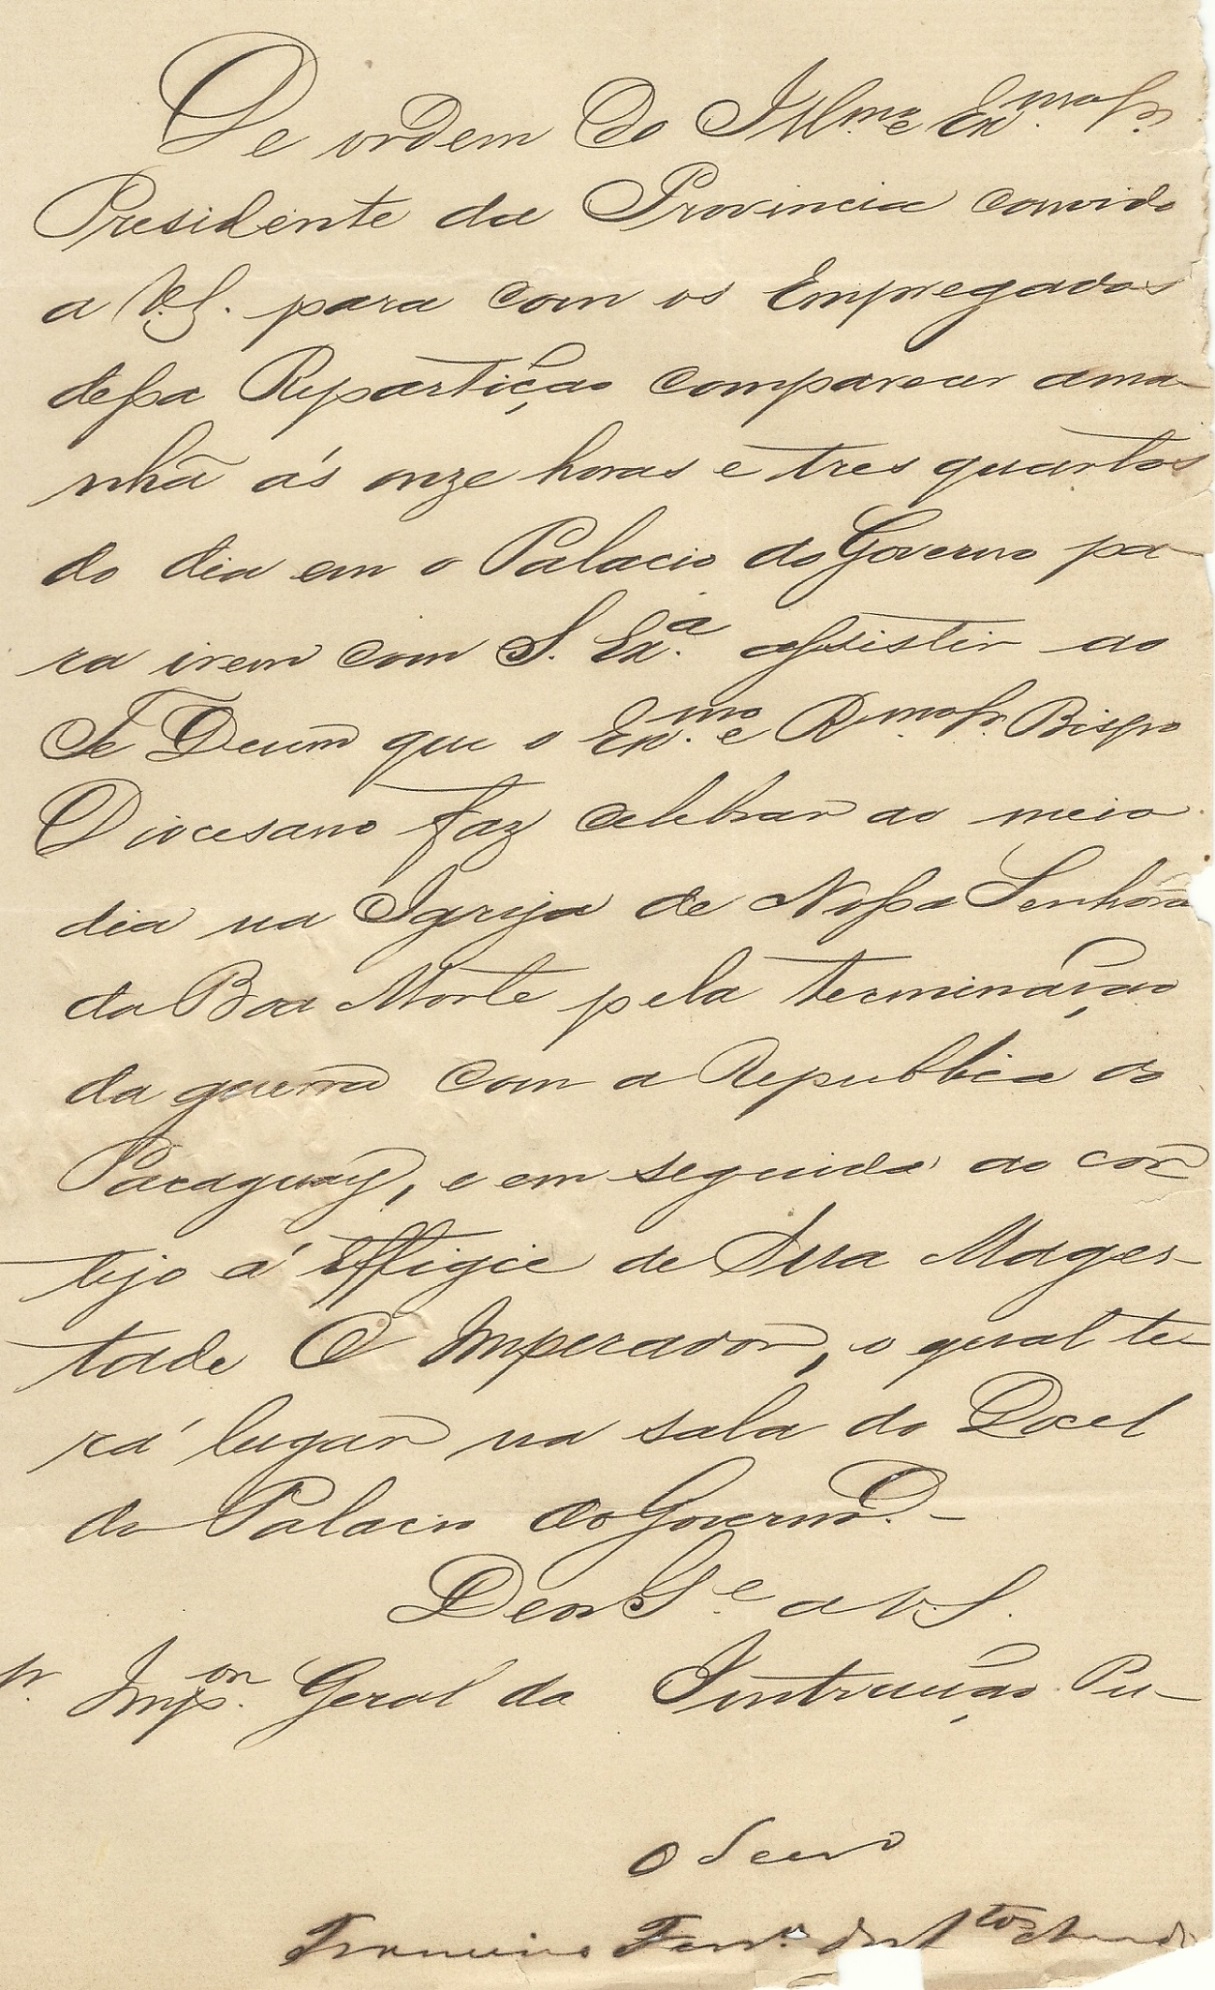 De ordem do Illm.º e Ex.mo Sr.
Presidente da Provincia convido
a V.S. para com os Empregados
dessa Repartição comparecer ama-
nhã ás onze horas e tres quartos
do dia em o Palacio do Governo pa-
ra irem com S. Ex.ª assistir ao
Te Deum que o Ex.mo e R.mo Sr. Bispo
Diocesano faz celebrar ao meio
dia na Igreja de Nossa Senhora
da Boa Morte pela terminação
da guerra com a Republica do
Paraguay, e em seguida ao cor
tejo á Effigie de Sua Mages-
tade O Imperador, o qual te-
rá lugar na sala do Docel
do Palacio do Governo.
Deos G.e a V.S.
Sr. Insp.or Geral da Instrucção Pu-
O Secr.o
Francisco Ferr.a dos S.tos